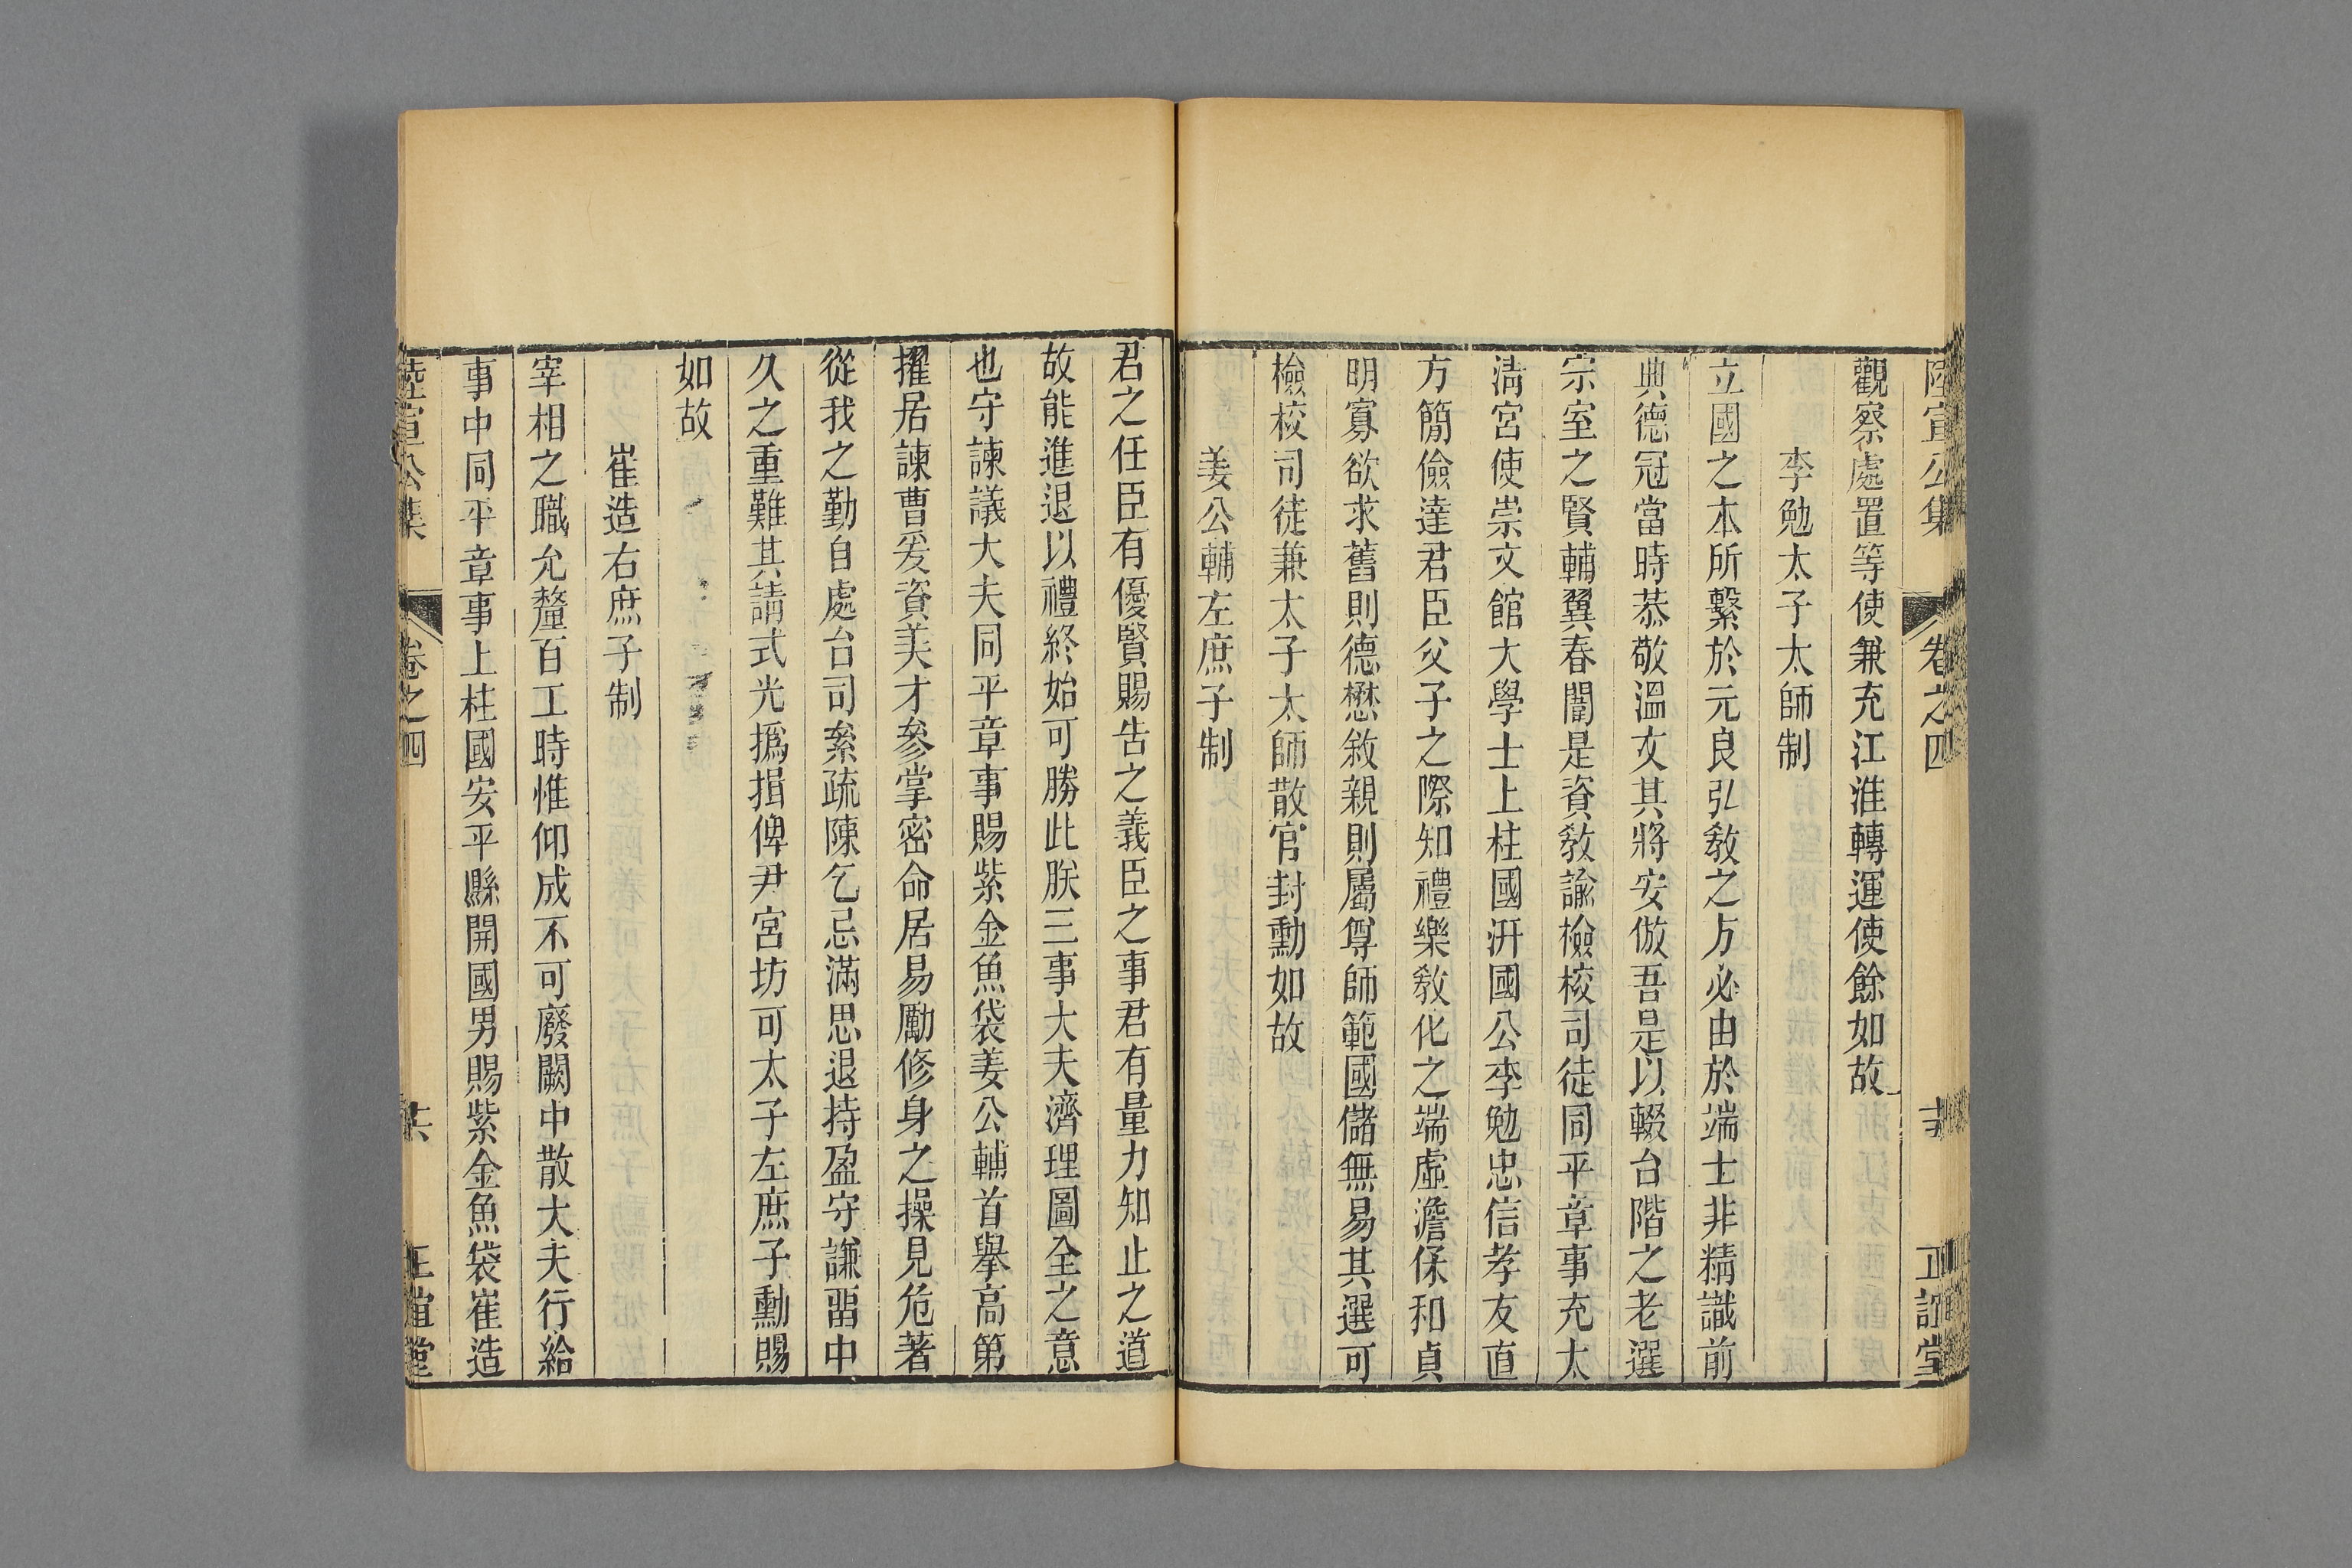 陸宣公集 卷之四 正誼堂
觀察處置等使兼充江淮轉運使餘如故
李勉太子太師制
立國之本所繫於元良弘敎之方必由於端士非精識前
典德冠當時恭敬溫文其將安倣吾是以輟台階之老選
宗室之賢輔翼春闈是資敎諭檢校司徒同平章事充太
淸宮使崇文館大學士上柱國汧國公李勉忠信孝友直
方簡儉達君臣父子之際知禮樂敎化之端虛澹保和貞
明寡欲求舊則德懋敘親則屬尊師範國儲無易其選可
檢校司徒兼太子太師散官封勳如故
姜公輔左庶子制
君之任臣有優賢賜告之義臣之事君有量力知止之道
故能進退以禮終始可勝此朕三事大夫濟理圖全之意
也守諫議大夫同平章事賜紫金魚袋姜公輔首舉高第
擢居諫曹爰資美才參掌密命居易勵修身之操見危著
從我之勤自處台司累疏陳乞忌滿思退持盈守謙畱中
久之重難其請式光撝揖俾尹宮坊可太子左庶子勳賜
如故
崔造右庶子制
宰相之職允釐百工時惟仰成不可廢闕中散大夫行給
事中同平章事上柱國安平縣開國男賜紫金魚袋崔造
陸宣公集 卷之四 六 正誼堂